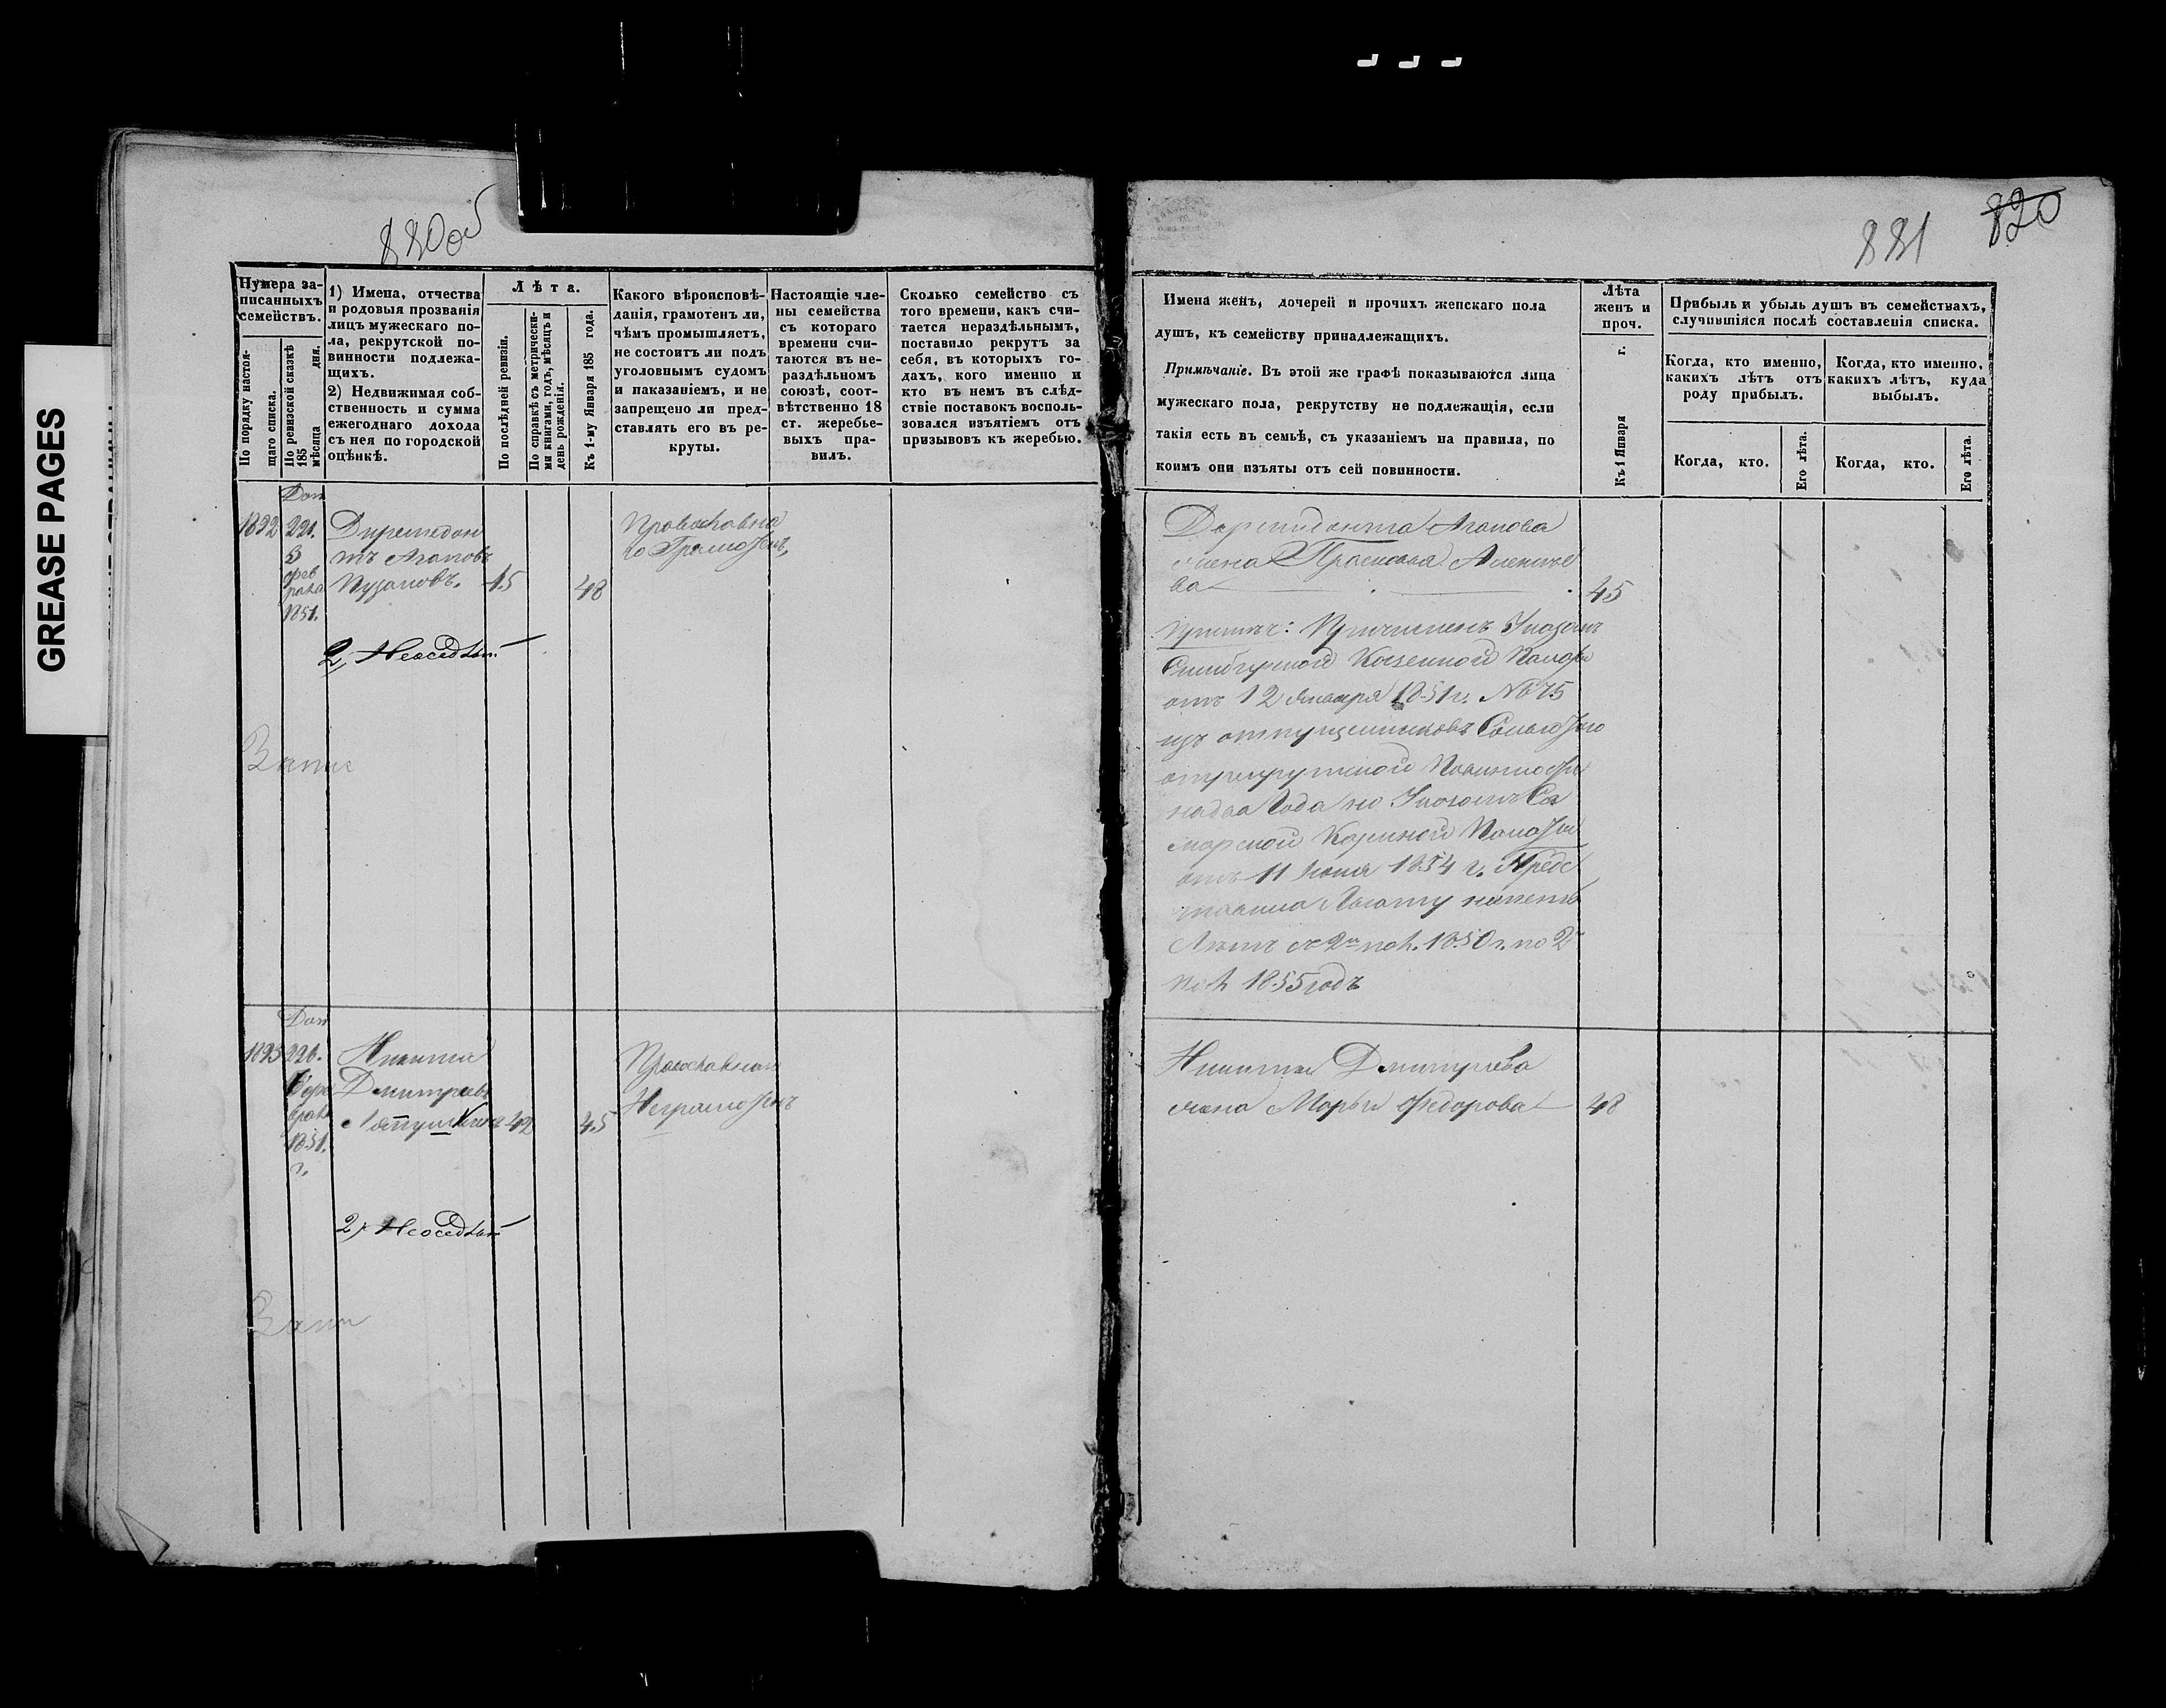 GREASE PAGES
880об
881
820
Нумера за-
писанныхъ
семействъ.
По порядку настоя-
щаго списка.
По ревизской сказкѣ
185 дня.
мѣсяца
1) Имена, отчества
и родовыя прозванія
лицъ мужескаго по-
ла, рекрутской по-
винности подлежа-
щихъ.
2) Недвижимая соб-
ственность и сумма
ежегоднаго дохода
съ нея по городской
оцѣнкѣ.
Лѣта.
По послѣдней ревизіи.
По справкѣ съ метрически-
ми книгами, годъ, мѣсяцъ и
день рожденія.
Къ 1-му Января 185 года.
Какого вѣроисповѣ-
данія, грамотенъ ли,
чѣмъ промышляетъ,
не состоитъ ли подъ
уголовнымъ судомъ
и наказаніемъ, и не
запрещено ли пред-
ставлять его въ ре-
круты.
Настоящіе чле-
ны семейства
съ котораго
времени счи-
таются въ не-
раздѣльномъ
союзѣ, соот-
вѣтственно 18
ст. жеребье-
выхъ пра-
вилъ.
Сколько семейство съ
того времени, какъ счи-
тается нераздѣльнымъ,
поставило рекрутъ за
себя, въ которыхъ го-
дахъ, кого именно и
кто въ немъ въ слѣд-
ствіе поставокъ восполь-
зовался изъятіемъ отъ
призывовъ къ жеребью.
Доп
1892 221. Диримедон
3 тъ Агаповъ
фев Пузановъ. 45 48
раля
1851.
Православна
го Грамотенъ,
2, Неоседлый
1893 226. Никита
Дмитріевъ
42 45
1851.
г.
Православнаго
Неграмотенъ
2, Неоседлый
Имена женъ, дочерей и прочихъ женскаго пола
душъ, къ семейству принадлежащихъ.
Примѣчаніе. Въ этой же графѣ показываются лица
мужескаго пола, рекрутству не подлежащія, если
такія есть въ семьѣ, съ указаніемъ на правила, по
коимъ они изъяты отъ сей повинности.
Лѣта
женъ и
проч.
Къ 1 Января г.
Прибыль и убыль душъ въ семействахъ,
случившіяся послѣ составленія списка.
Когда, кто именно,
какихъ лѣтъ отъ
роду прибылъ.
Когда, кто именно,
какихъ лѣтъ, куда
выбылъ.
Когда, кто.
Его лѣта.
Когда, кто.
Его лѣта.
Дормидонта Агапова
жена Прасковья Алексѣе
ва 45
Примѣч: Причисленъ Указомъ
Симбирской Казенной Палаты
отъ 12 Января 1851 г. № 75
изъ отпущенниковъ Сольготою
отрекрутской Повинности
надва года по Указомъ Са
марской Казенной Палаты
отъ 11 Июня 1854 г. Предо
ставлена Льготу напять
Лѣтъ съ 2й пол. 1850 г. по 2ю
пол. 1855 годъ
Никиты Дмитріева
жена Марья Федорова 48